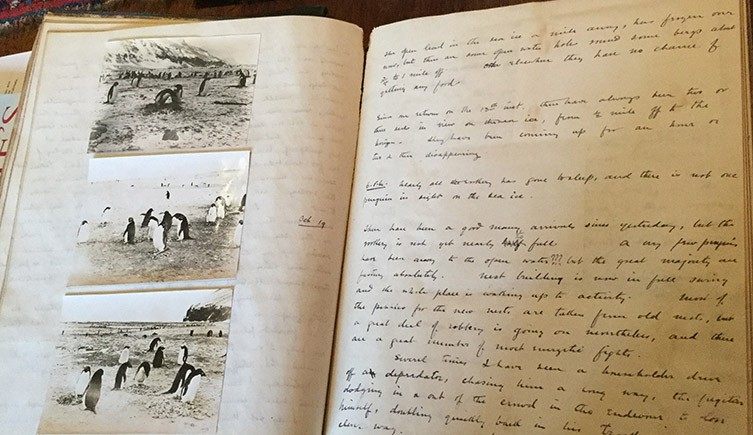 Oct. 19.
The open lead in the sea ice a mile away, has frozen over
but there are some open water holes round some bergs about
¾ to 1 mile off elsewhere they have no chance of
getting any food.
Since our return on the 13th inst. there have always been two or
three seals in view on the sea ice, from ½ mile off to the
They have been coming up for an hour or
two & then disappearing
6. P.m. Nearly all the rookery has gone to sleep, and there is not one
penguin in sight on the sea ice.
There have been a good many arrivals since yesterday, but the
rookery is not yet nearly half full. A very few penguins
have been away to the open water??? but the great majority are
fasting absolutely. Nest building is now in full swing
and the whole place is waking up to activity. Most of
the pebbles for the new nests are taken from old nests, but
a great deal of robbery is going on nevertheless, and there
are a great number of most energetic fights.
Several times I have seen a householder drive
off a depredator, chasing him a long way, the fugitive
dodging in & out of the crowd in the endeavour to lose
himself, doubling quickly back in his
way.